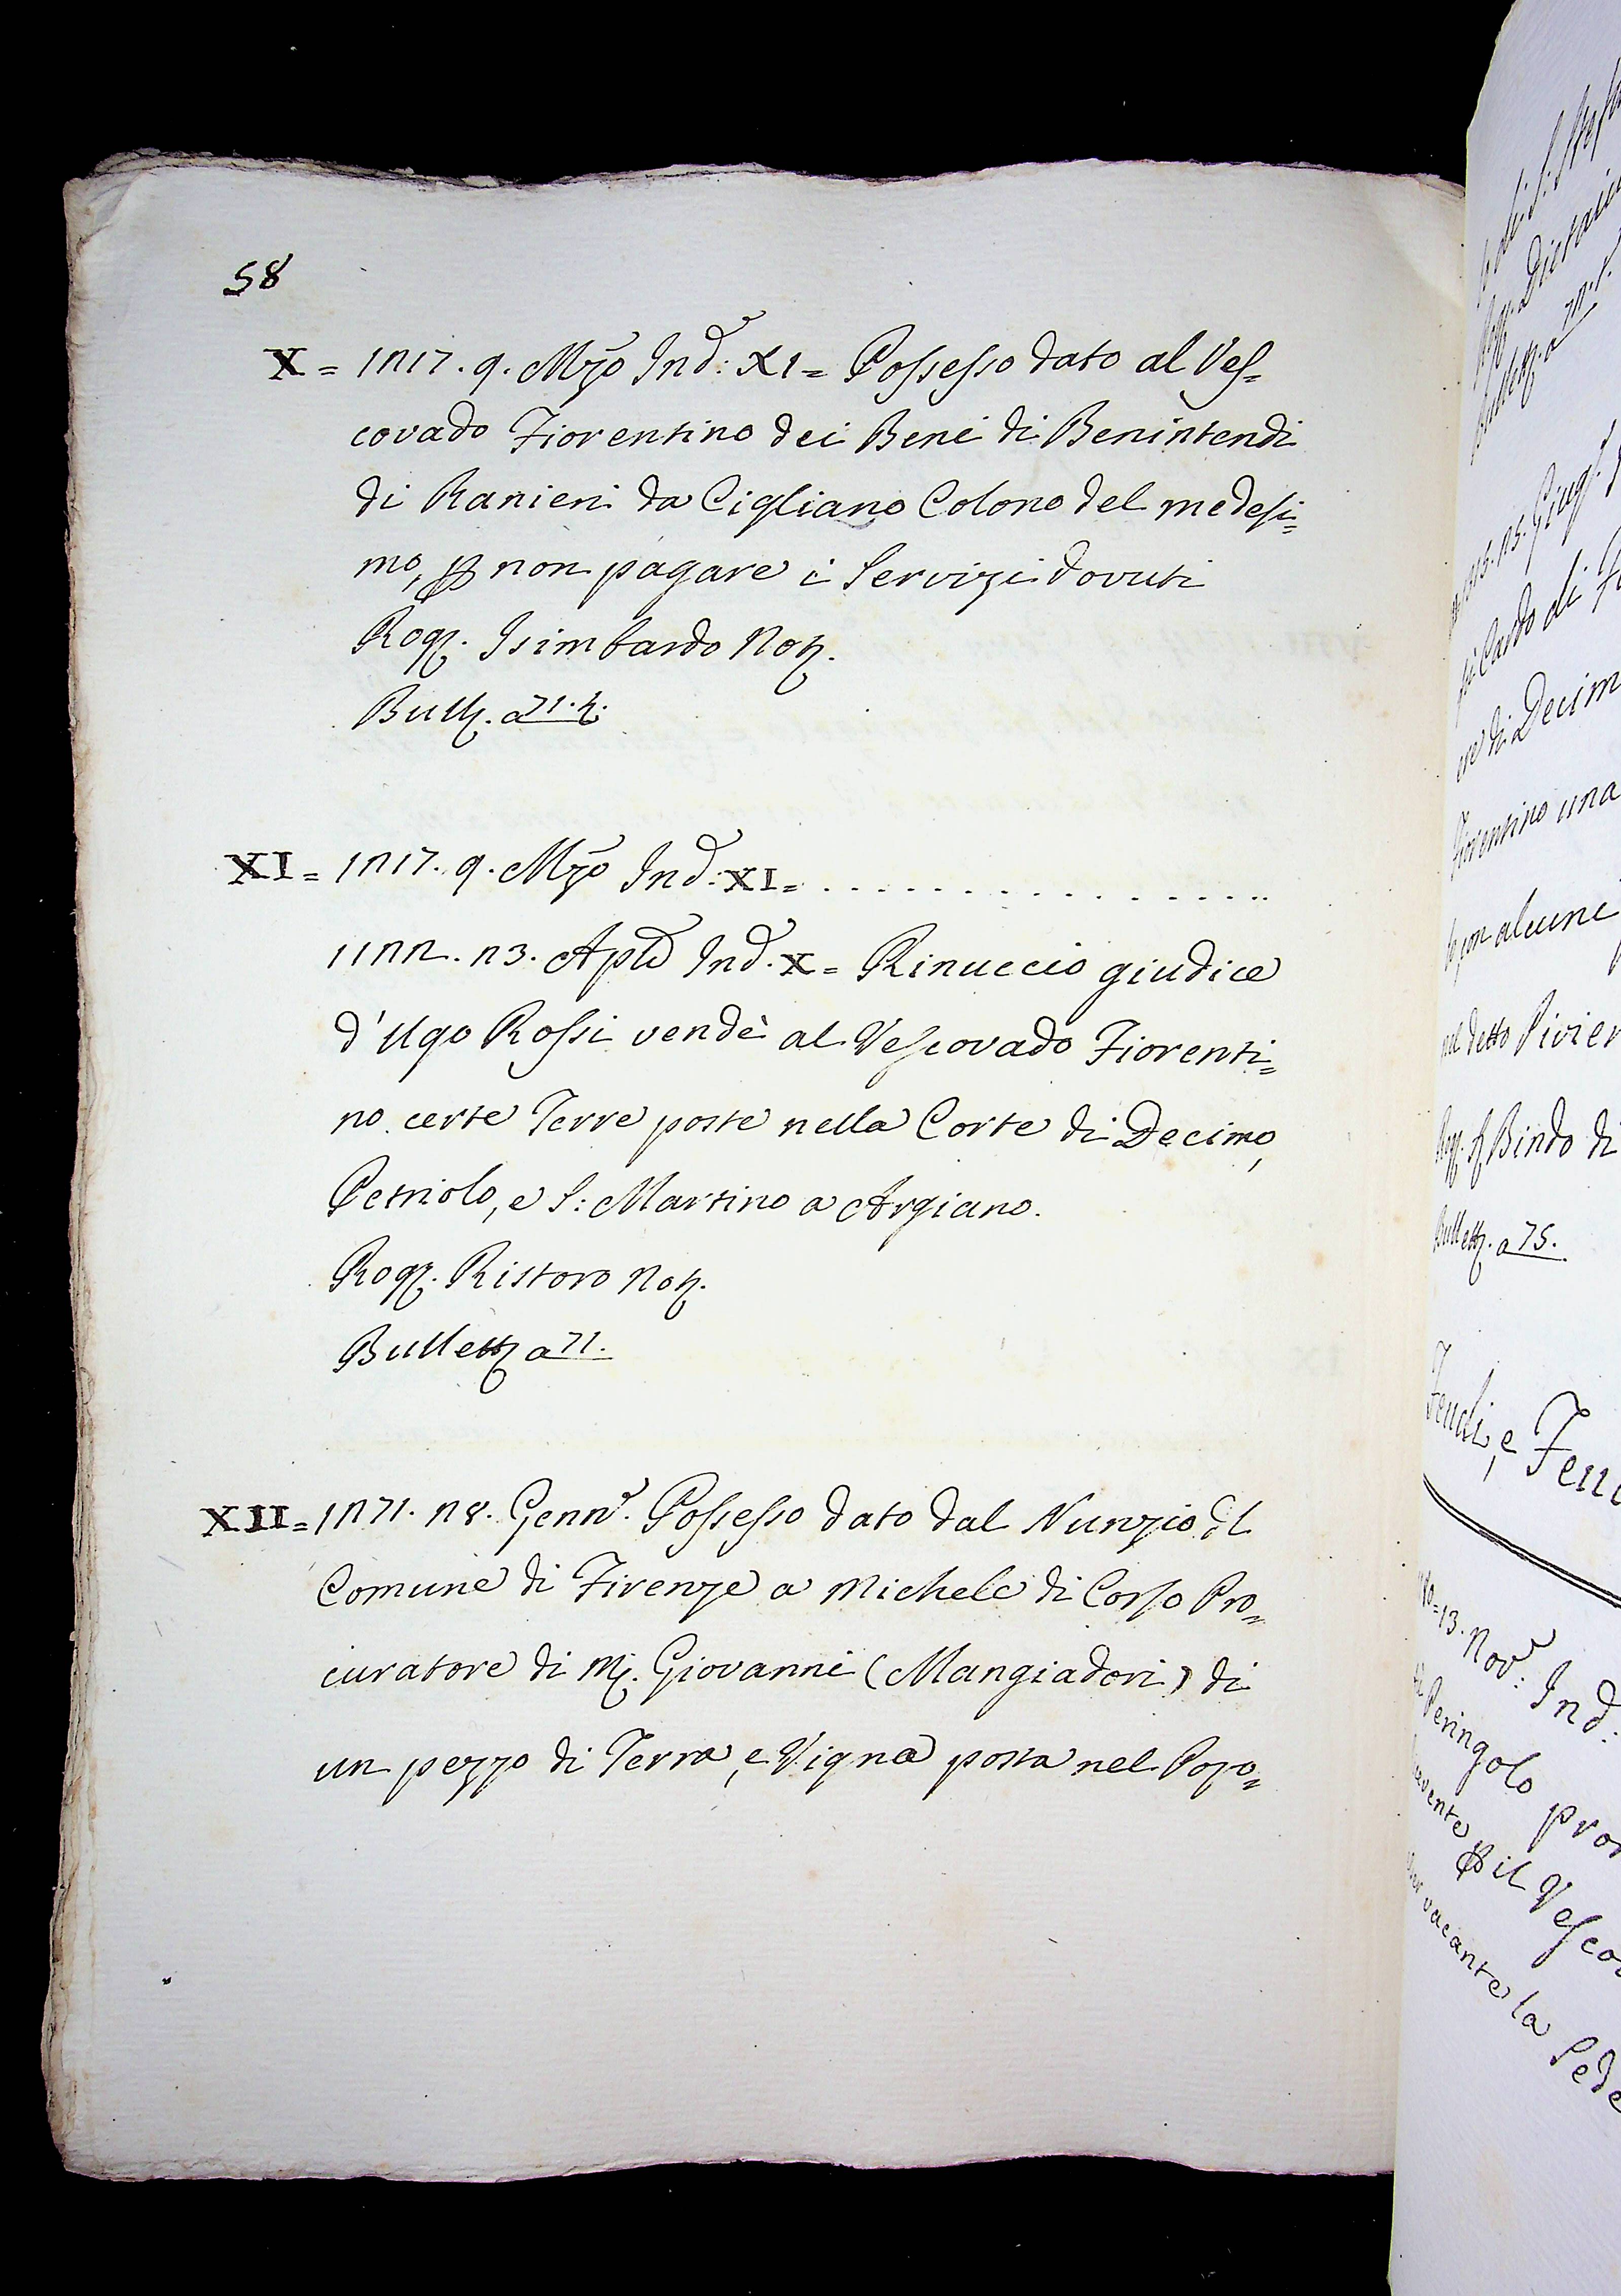 58
X = 1217. 9. Mzo Ind: XI = Possesso dato al Ves=
covado Fiorentino dei Beni di Benintendi
di Ranieri da Cigliano Colono del medesi=
mo, p non pagare i Servizi dovuti
Rog. Isimbardo Not.
Bull. a 71. t.
XI = 1217. 9. Mzo Ind: XI = . . . . . . . . . . . . . . . . .
1122. 23. Aple Ind. X = Rinuccio giudice
d'Ugo Rossi vendè al Vescovado Fiorenti=
no certe Terre poste nella Corte di Decimo,
Petriolo, e S: Martino a Argiano.
Rog. Ristoro Not.
Bullett a 71.
XII = 1271. 28. Genn. Possesso dato dal Nunzio del
Comune di Firenze a Michele di Corso Pro=
curatore di M. Giovanni (Mangiadori) di
un pezzo di Terra, e Vigna posta nel Popo=
di Decim
Fiorentino una
con alcune
nel detto Pivier
Bindo di
Bullett. a 75.
Feudi, e Feu
13. Nov: Ind:
Peringolo pro
p il Vesco
vacante la Sede